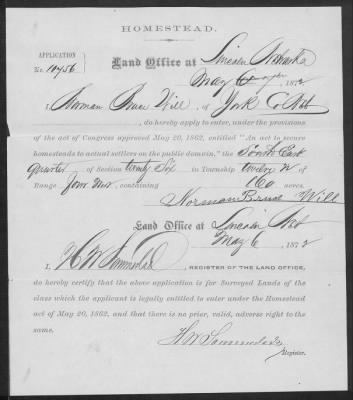 HOMESTEAD.
APPLICATION
No. 10456
Land Office at Lincoln Nebraska
May 6 1872
I, Norman Bruce Will, of York Co Neb
, do hereby apply to enter, under the provisions
of the act of Congress approved May 20, 1862, entitled "An act to secure
homesteads to actual settlers on the public domain," the South East
quarter of Section twenty Six in Township twelve N of
Range four West, containing 160 acres.
Norman Bruce Will
Land Office at Lincoln Neb
May 6 1872
I, , REGISTER OF THE LAND OFFICE,
do hereby certify that the above application is for Surveyed Lands of the
class which the applicant is legally entitled to enter under the Homestead
act of May 20, 1862, and that there is no prior, valid, adverse right to the
same.
Register.